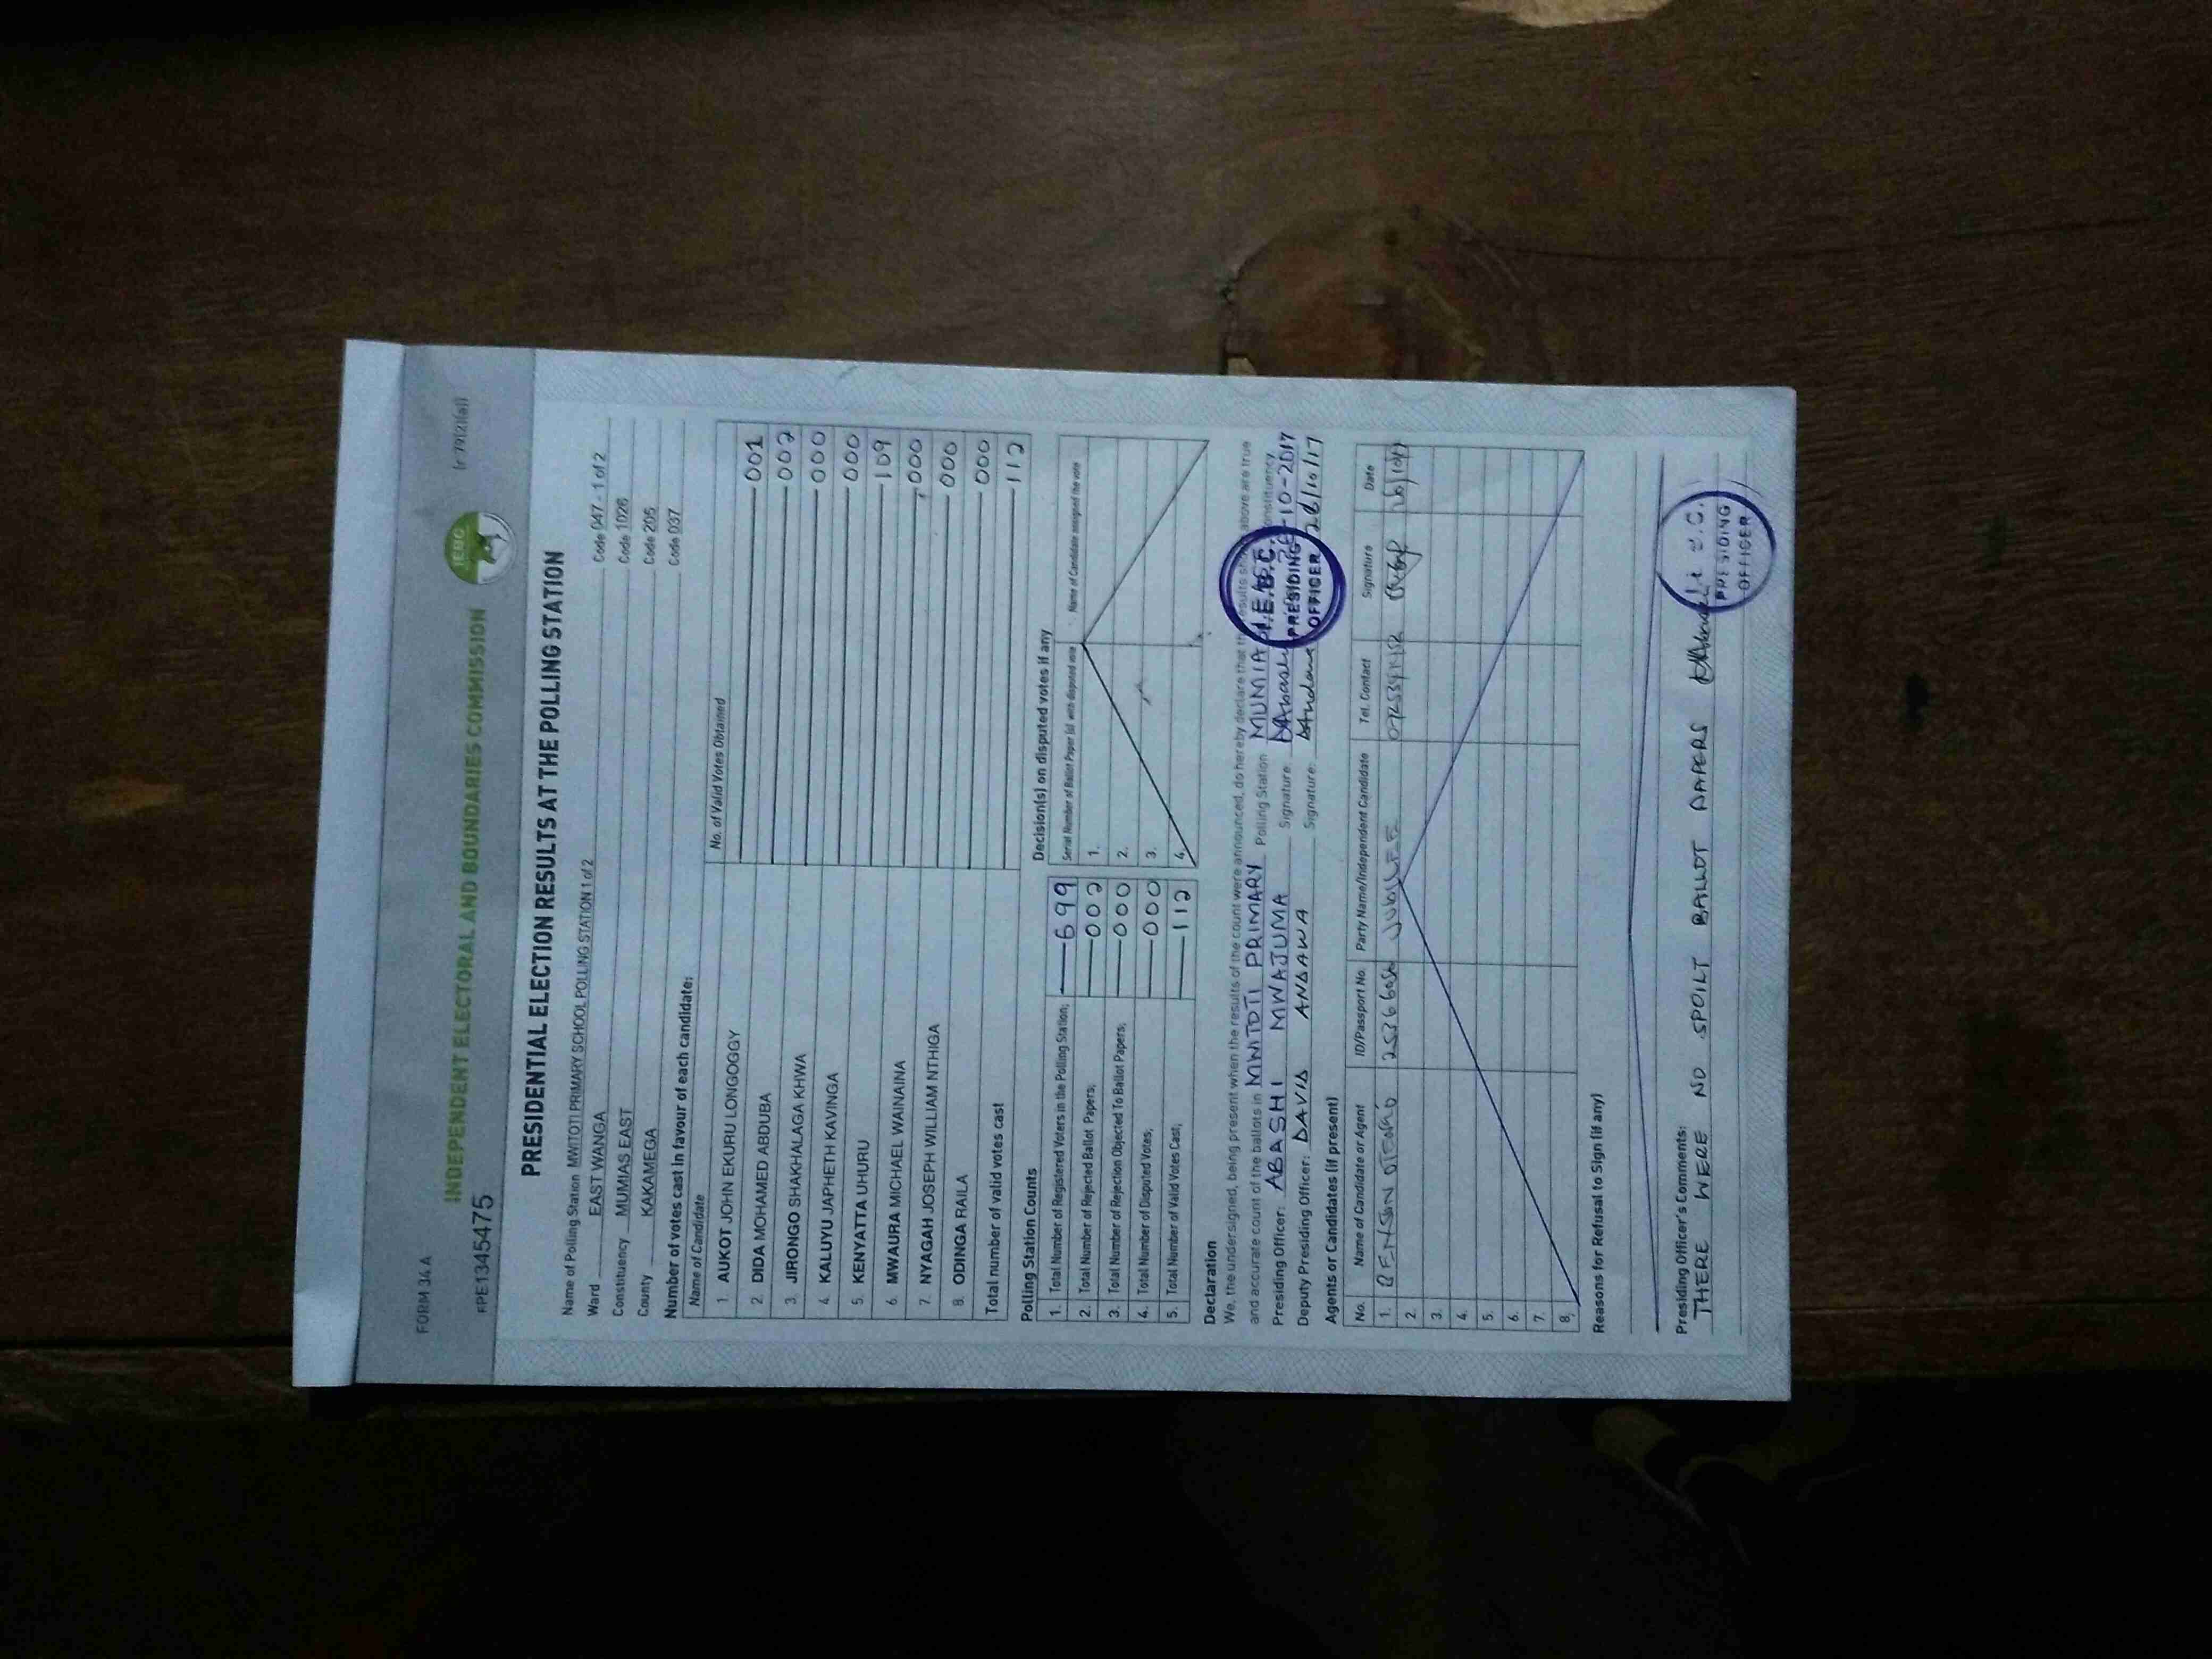 FORM 34 A (r 79(2)(a))
INDEPENDENT ELECTORAL AND BOUNDARIES COMMISSION
IEBC
PRESIDENTIAL ELECTION RESULTS AT THE POLLING STATION
Name of Polling Station MWITOTI PRIMARY SCHOOL POLLING STATION 1 of 2 Code 047 - 1 of 2
Ward EAST WANGA Code 1026
Constituency MUMIAS EAST Code 205
County KAKAMEGA Code 037
Number of votes cast in favour of each candidate:
Name of Candidate No. of Valid Votes Obtained
1. AUKOT JOHN EKURU LONGOGGY 001
2. DIDA MOHAMED ABDUBA 002
3. JIRONGO SHAKHALAGA KHWA 000
4. KALUYU JAPHETH KAVINGA 000
5. KENYATTA UHURU 109
6. MWAURA MICHAEL WAINAINA 000
7. NYAGAH JOSEPH WILLIAM NTHIGA 000
8. ODINGA RAILA 000
Total number of valid votes cast 112
Polling Station Counts
1. Total Number of Registered Voters in the Polling Station; 699
2. Total Number of Rejected Ballot Papers; 002
3. Total Number of Rejection Objected To Ballot Papers; 000
4. Total Number of Disputed Votes; 000
5. Total Number of Valid Votes Cast; 112
Decision(s) on disputed votes if any
Serial Number of Ballot Paper (s) with disputed vote Name of Candidate assigned the vote
1.
2.
3.
4.
Declaration
We, the undersigned, being present when the results of the count were announced, do hereby declare that the results shown above are true
and accurate count of the ballots in MWITOTI PRIMARY Polling Station MUMIAS EAST Constituency
Presiding Officer: ABASHI MWAJUMA Signature: 26-10-2017
Deputy Presiding Officer: DAVIS ANDAWA Signature: 26/10/17
I.E.B.C.
PRESIDING
OFFICER
Agents or Candidates (if present)
No. Name of Candidate or Agent ID/Passport No. Party Name/Independent Candidate Tel. Contact Signature Date
1. JUBILEE
2.
3.
4.
5.
6.
7.
8.
Reasons for Refusal to Sign (if any)
Presiding Officer's Comments:
THERE WERE NO SPOILT BALLOT PAPERS
PRESIDING
OFFICER